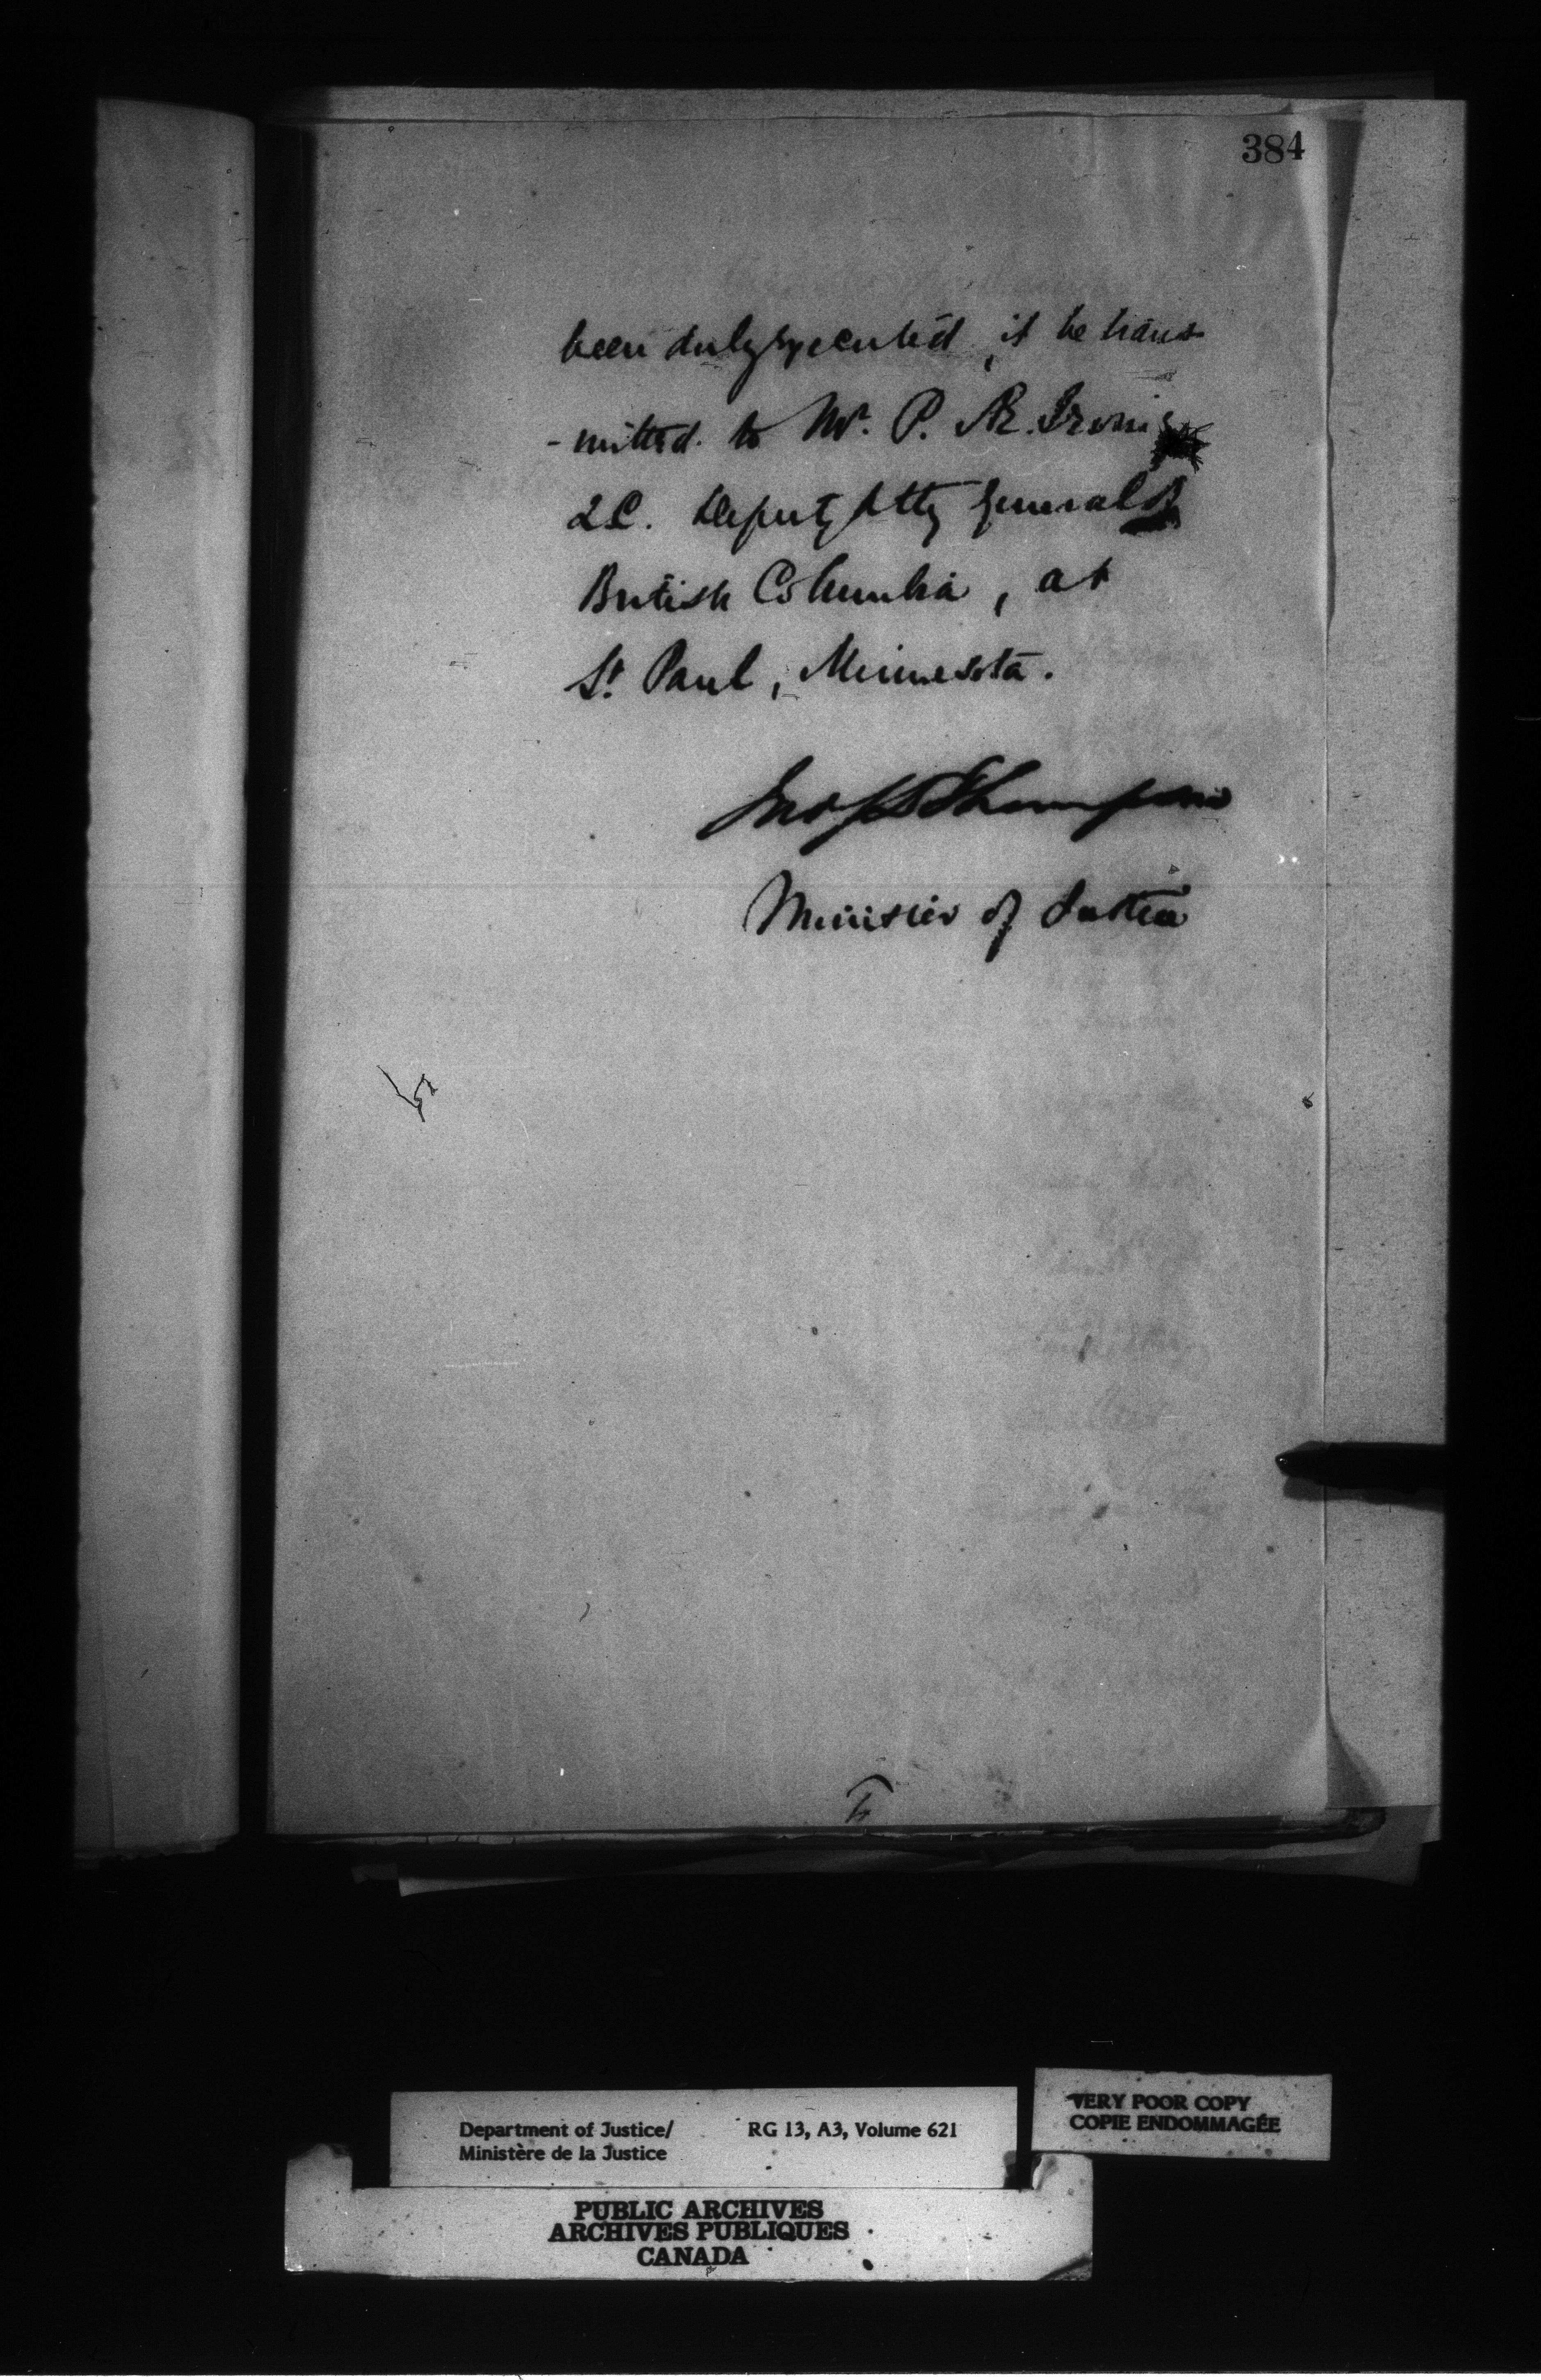 384
been duly executed, it be trans
-mitted to Mr. P. Æ. Irving
Q.C. Deputy Atty General of
British Columbia, at
St. Paul, Minnesota.
Jno S D Thompson
Minister of Justice
Department of Justice/ RG 13, A3, Volume 621
Ministère de la Justice
VERY POOR COPY
COPIE ENDOMMAGÉE
PUBLIC ARCHIVES
ARCHIVES PUBLIQUES
CANADA